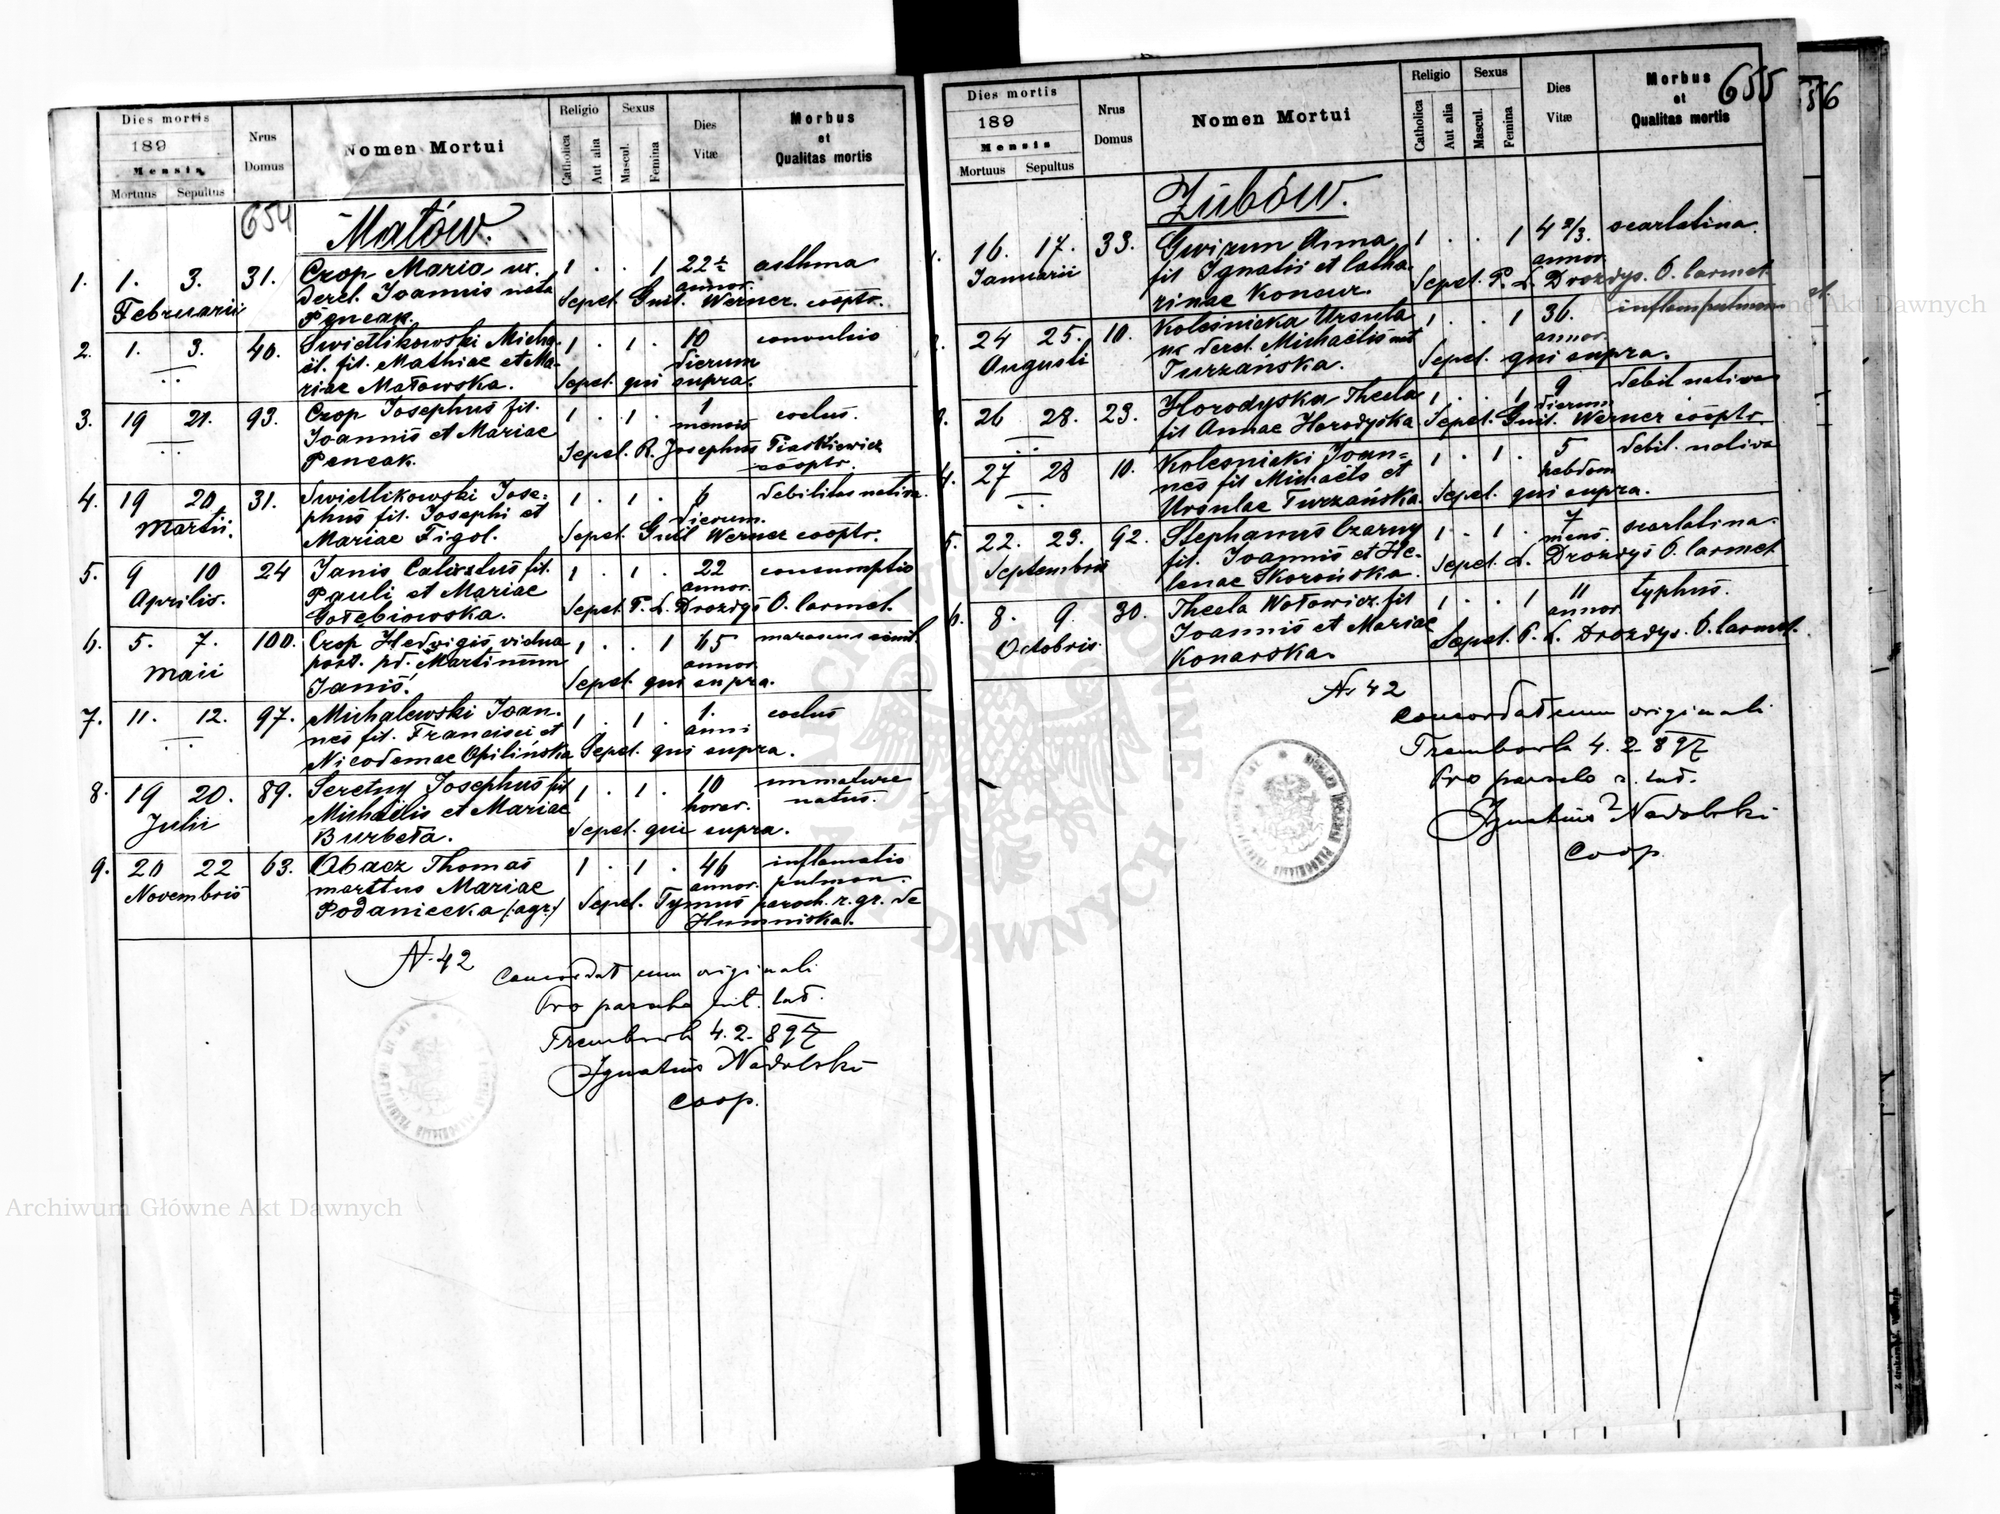 Dies mortis
189
Mensis
Mortuus Sepultus
Nrus
Domus
Nomen Mortui
Religio
Catholica
Aut alia
Sexus
Mascul.
Femina
Dies
Vitæ
Morbus
et
Qualitas mortis
654
Małów.
1. 1. 3. 31. Czop Maria ux. 1 . . 1 22½ asthma
Februarii derel. Joannis nata annor.
Pencak. Sepel. Guil. Werner. cooptr.
2. 1. 3. 40. Swietlikowski Micha- 1 . 1 . 10 convulsio
el. fil. Mathiae et Ma- dierum
riae Małowska. Sepel. qui supra.
3. 19 21. 93. Czop Josephus fil. 1 . 1 . 1 coelus.
Joannis et Mariae mensis
Pencak. Sepel. R. Josephus Piaskiewicz
cooptr.
4. 19 20. 31. Swietlikowski Jose- 1 . 1 . 6 debilitas nativa.
Martii. phus fil. Josephi et dierum.
Mariae Figol. Sepel. Guil Werner cooptr.
5. 9 10 24 Janis Calixtus fil. 1 . 1 . 22 consumptio
Aprilis. Pauli et Mariae annor.
Gołębiowska. Sepel. P. L. Drozdys O. Carmel.
6. 5. 7. 100. Czop Hedvigis vidua 1 . . 1 65 marasmus senil.
Maii post. pd. Martinum annor.
Janis. Sepel. qui supra.
7. 11. 12. 97. Michalewski Joan- 1 . 1 . 1. coelus
nes fil. Francisci et anni
Nicodemae Opilińska Sepel. qui supra.
8. 19 20. 89. Seretny Josephus fil 1 . 1 . 10 immature
Julii Michaelis et Mariae horar. natus.
Burbeła. Sepel. qui supra.
9. 20 22 63. Obacz Thomas 1 . 1 . 46 inflamatio
Novembris marttus Mariae annor. pulmon.
Podaniecka (:agr:) Sepel. Tymus paroch. r. gr. de
Humniska.
N. 42
Concordat cum originali
Pro parocho rit. lat.
Trembowla 4. 2. 897
Ignatius Nadolski
coop.
Dies mortis
189
Mensis
Mortuus Sepultus
Nrus
Domus
Nomen Mortui
Religio
Catholica
Aut alia
Sexus
Mascul.
Femina
Dies
Vitæ
Morbus
et
Qualitas mortis
655
Zubów.
16. 17. 33. Gwizun Anna 1 . . 1 4 2/3. scarlatina.
Januarii fil Ignatii et Catha- annor.
rinae Konaur. Sepel. P. L. Drozdys. O. Carmel.
24 25. 10. Koleśnicka Ursula 1 . . 1 36. inflam pulmon
Augusti ux derel. Michaelis nat annor.
Turzańska. Sepel. qui supra.
26 28. 23. Horodyska Thecla 1 . . 1 9 debil nativa
fil Annae Horodyska dierum
Sepel. Guil. Werner cooptr.
4. 27 28 10. Kolesnicki Joan- 1 . 1 . 5 debil. nativa
nes fil Michaelis et hebdom
Ursulae Turzańska. Sepel. qui supra.
5. 22. 23. 92. Stephanus Czarny 1 . 1 . 7 scarlatina.
Septembris fil. Joannis et He- mens.
lenae Skorońska. Sepel. L. Drozdys O. Carmel
6. 8. 9. 30. Thecla Wołowicz fil 1 . . 1 11 typhus.
Octobris. Joannis et Mariae annor
Konarska. Sepel. P. L. Drozdys. O. Carmel.
N. 42
Concordat cum originali
Trembowla 4. 2 897
Pro parocho r. lat.
Ignatius Nadolski
coop.
Archiwum Główne Akt Dawnych
Archiwum Główne Akt Dawnych